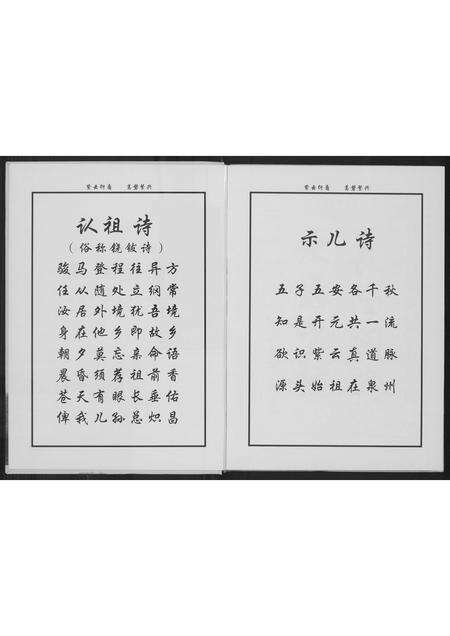 紫云衍裔
认祖诗
(俗称铙钹诗)
骏马登程往异方
任从随处立纲常
汝居外境犹吾境
身在他乡即故乡
朝夕莫忘亲命语
晨昏须荐祖前香
苍天有眼长垂佑
俾我儿孙总炽昌
紫云衍裔
示儿诗
五子五安各千秋
知是开元共一流
欲识紫云真道脉
源头始祖在泉州